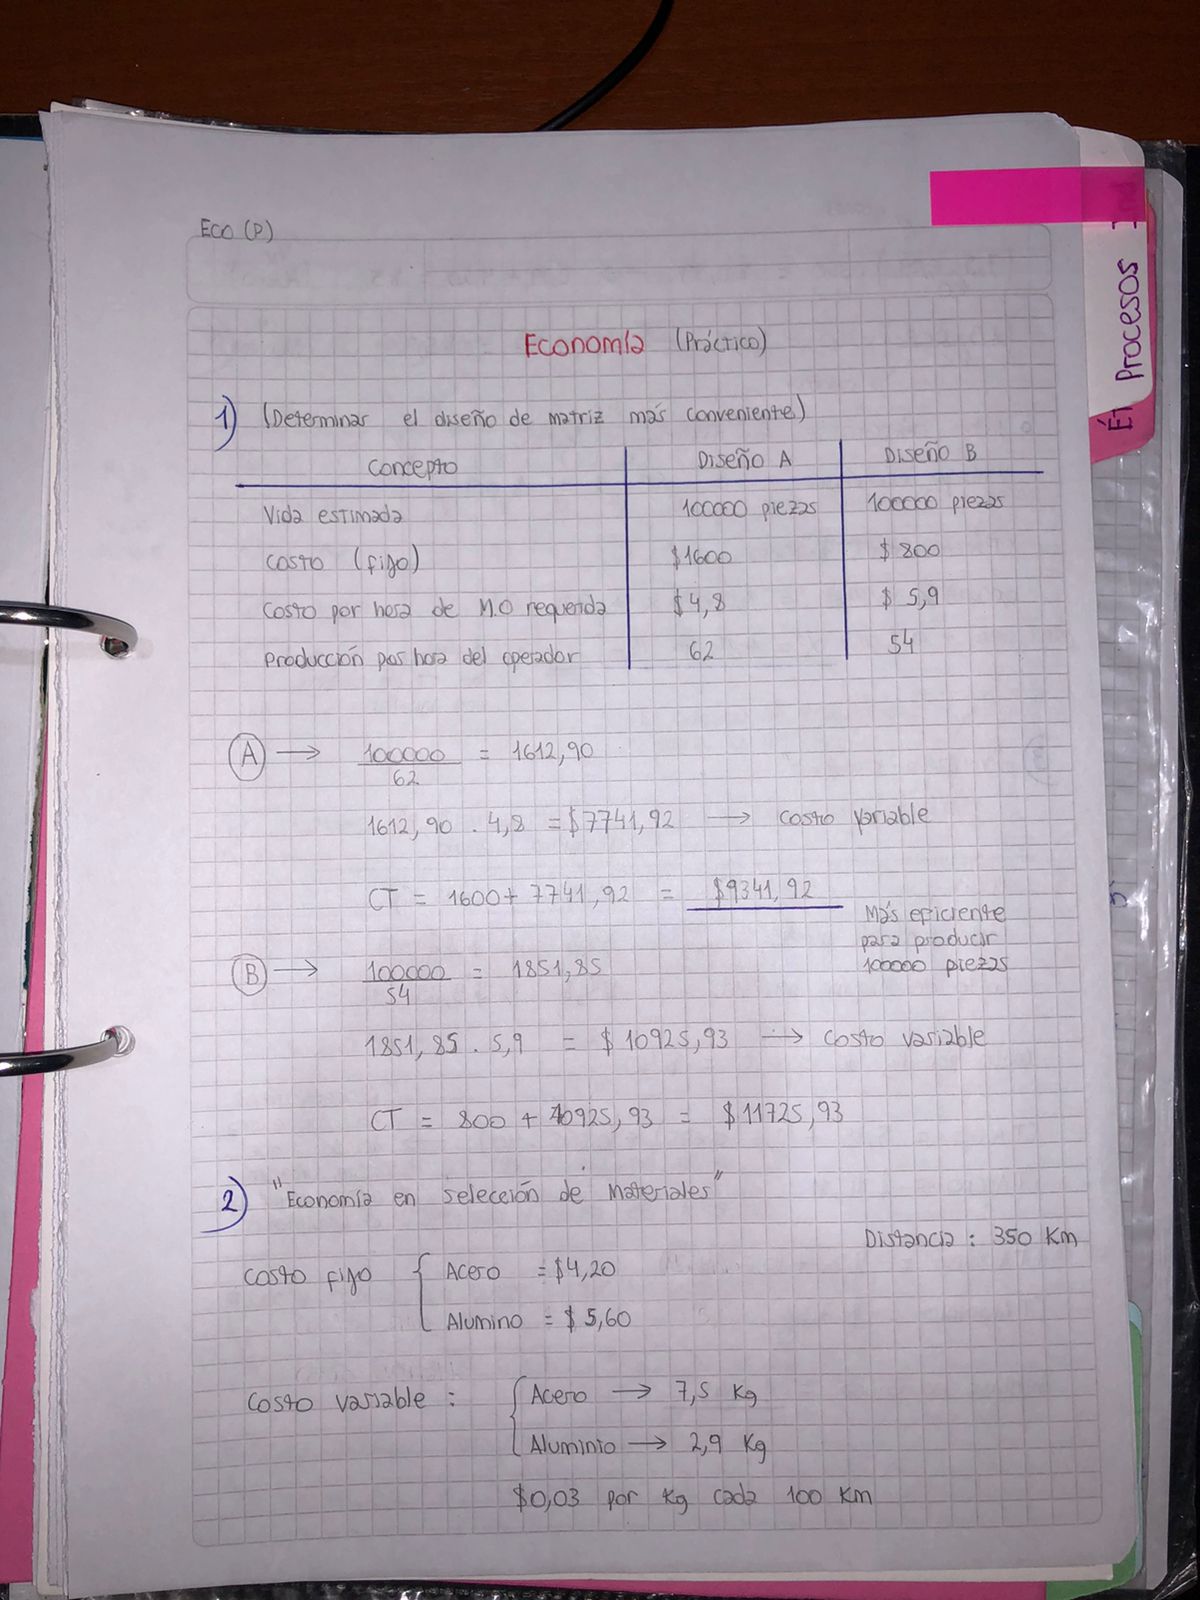 Eco (P)
Procesos Ind
Ét
Economía (Práctico)
1) (Determinar el diseño de matriz más conveniente)
Concepto Diseño A Diseño B
Vida estimada 100000 piezas 100000 piezas
Costo (fijo) $1600 $ 800
Costo por hora de M.O requerida $4,8 $ 5,9
Producción por hora del operador 62 54
A → 100000 = 1612,90
62
1612,90 . 4,8 = $7741,92 → Costo variable
CT = 1600 + 7741,92 = $9341,92
Más eficiente
para producir
100000 piezas
B → 100000 = 1851,85
54
1851,85 . 5,9 = $ 10925,93 → Costo variable
CT = 800 + 10925,93 = $11725,93
2) "Economía en selección de materiales"
Distancia : 350 Km
Costo fijo { Acero = $4,20
Alumino = $ 5,60
Costo variable : { Acero → 7,5 Kg
Aluminio → 2,9 Kg
$0,03 por Kg cada 100 Km